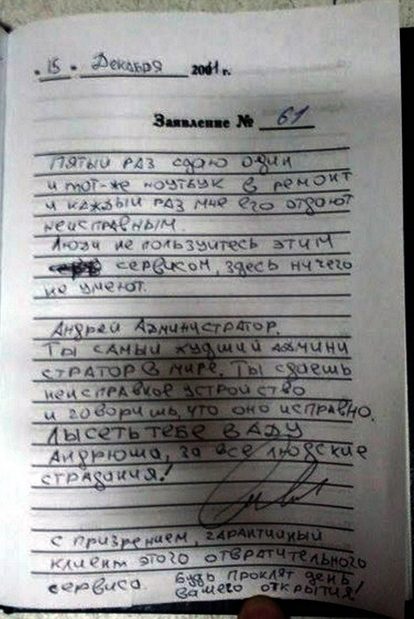 "15" Декабря 2011 г.
Заявление № 61
Пятый раз сдаю один
и тот-же ноутбук в ремонт
и каждый раз мне его отдают
неисправным.
Люди не пользуйтесь этим
сервисом, здесь ничего
не умеют.
Андрей Администратор.
Ты самый худший админи
стратор в мире. Ты сдаёшь
неисправное устройство
и говоришь, что оно исправно.
Лысеть тебе в аду
Андрюша, за все людские
страдания!
с призрением, гарантийный
клиент этого отвратительного
сервиса. Будь проклят день
вашего открытия!